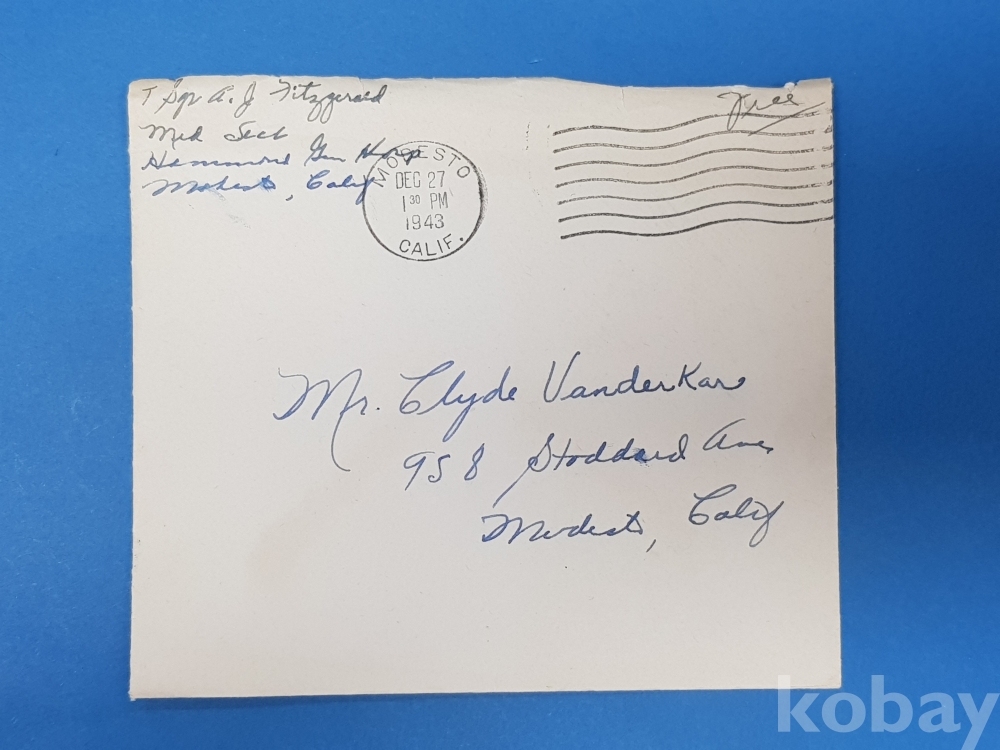 T Sgt A. J. Fitzgerald
Med Sect
Hammond Gen Hosp
Modesto, Calif
Free
MODESTO
DEC 27
1 30 PM
1943
CALIF.
Mr. Clyde Vanderkar
958 Stoddard Ave
Modesto, Calif
kobay